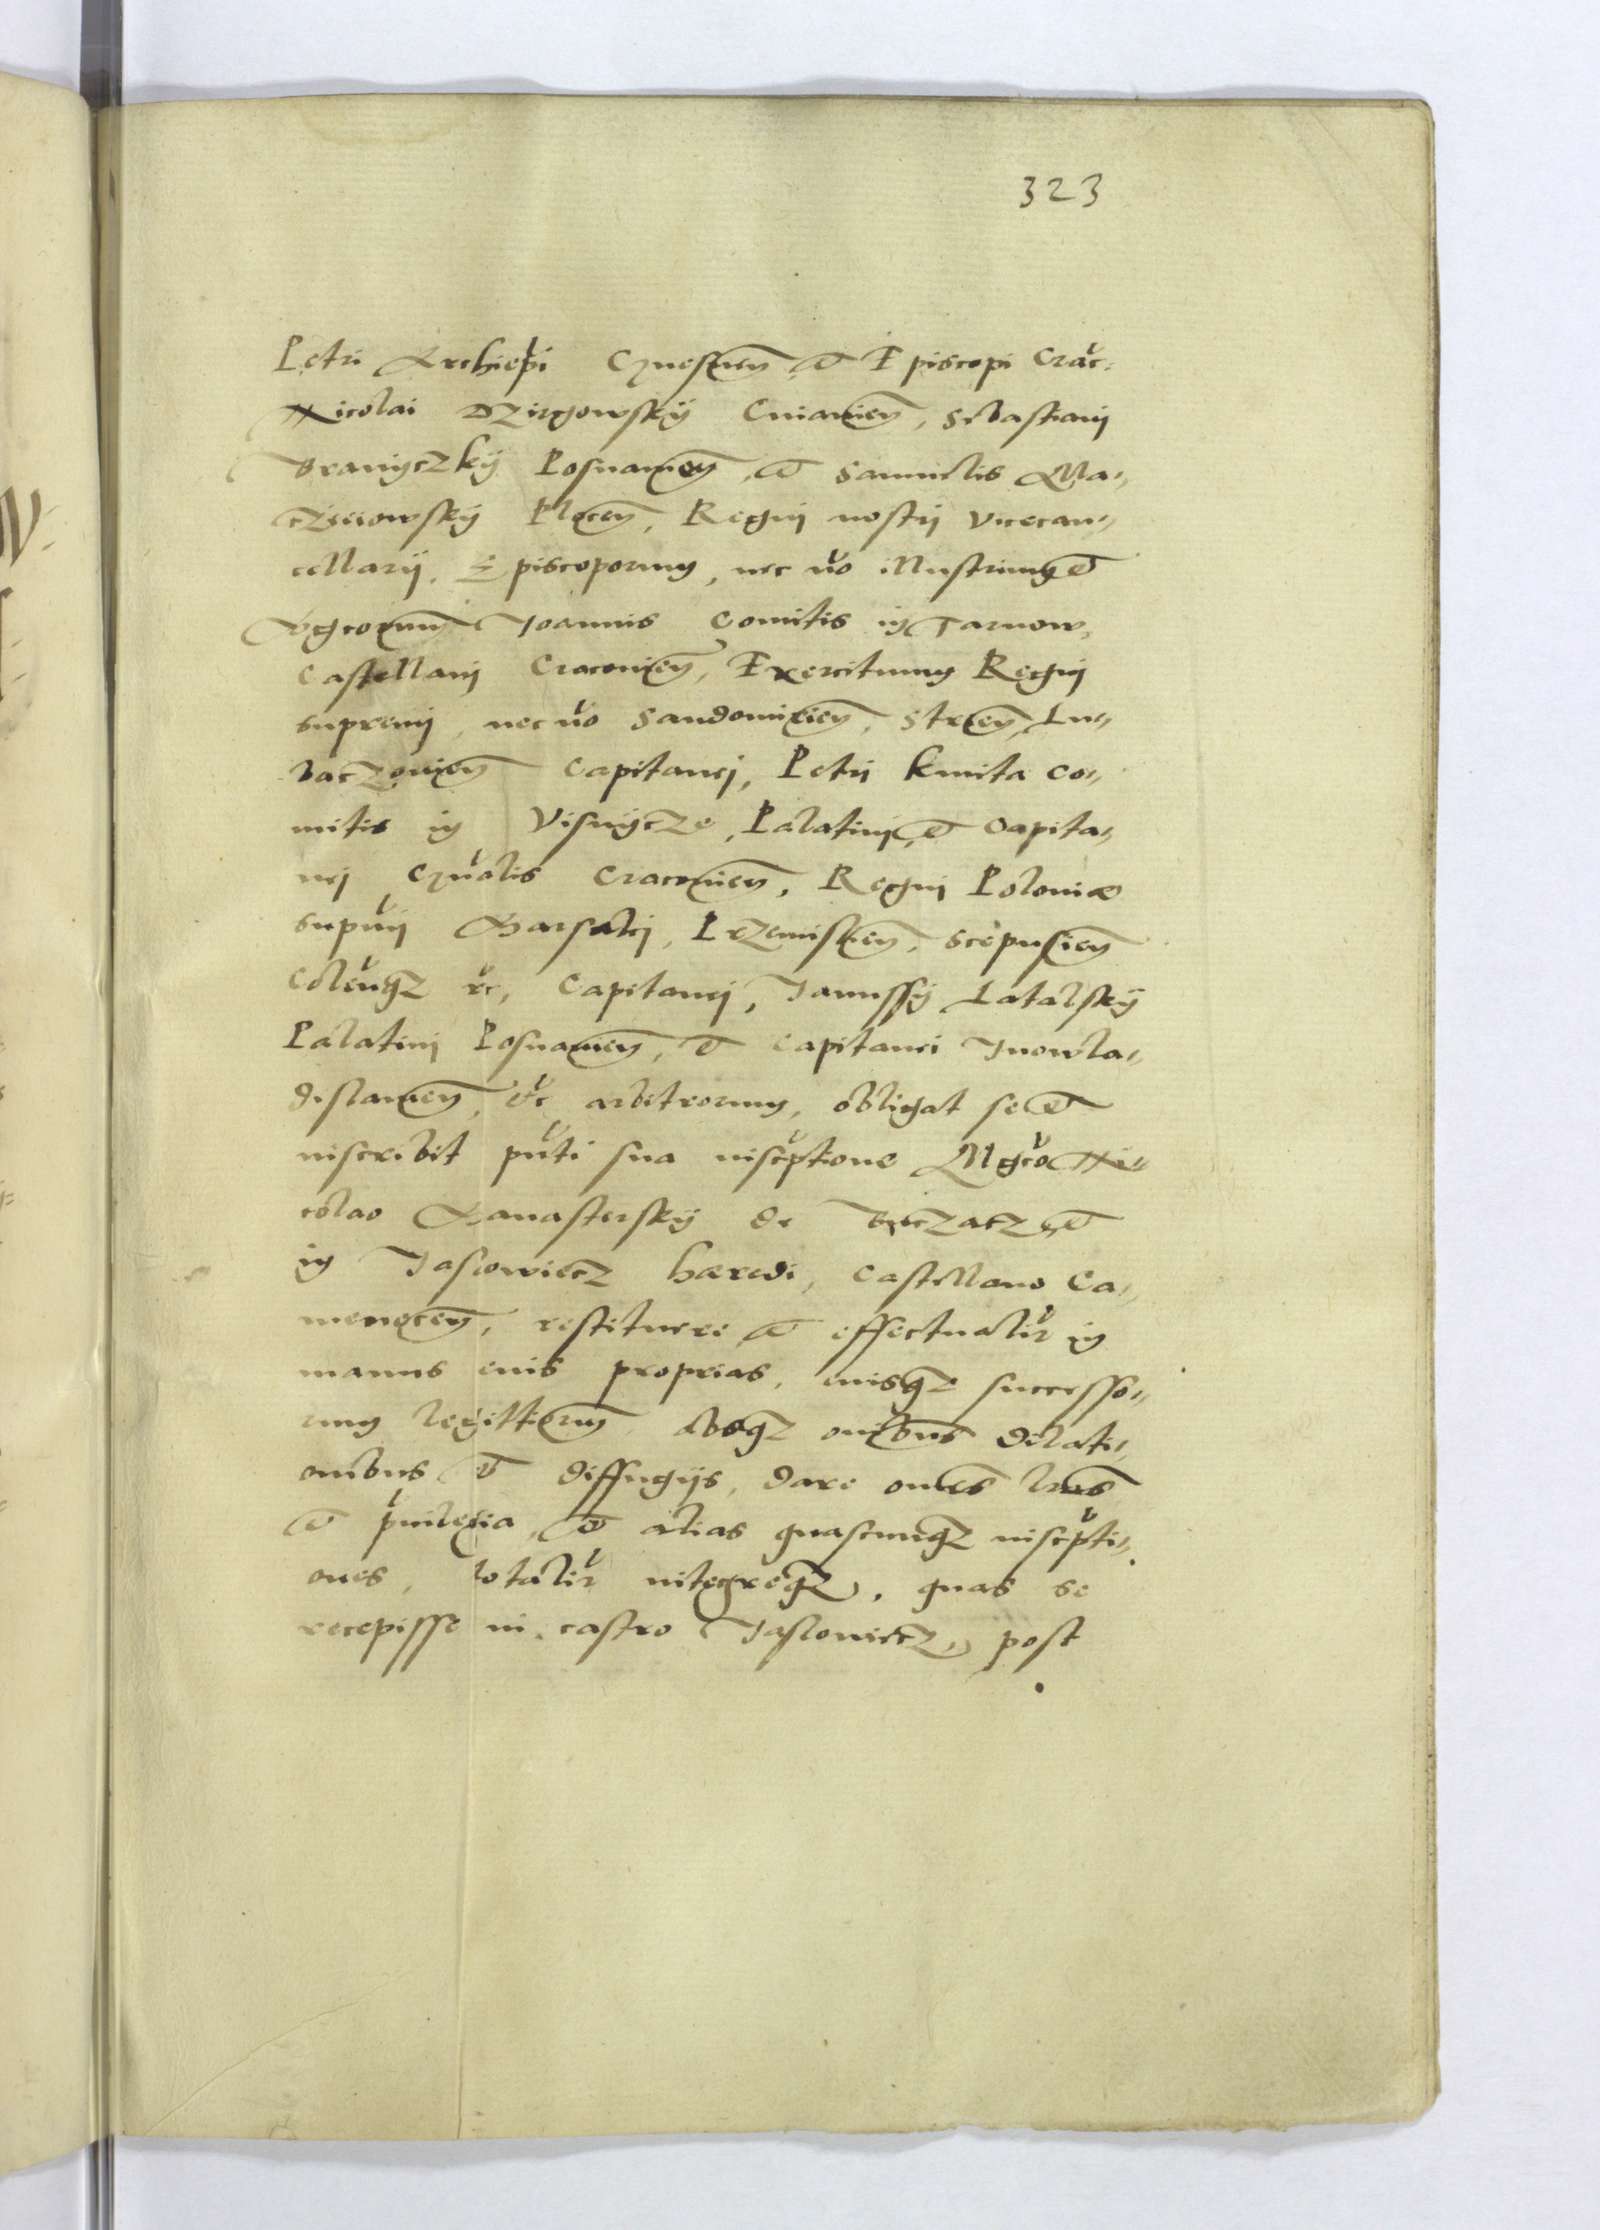 323
Petri Archiepi Gnesnen, et Episcopi Crac:
Nicolai Dzirgowsky Cuiavien, Sebastiani
Branyczky Posnanien, et Samuelis Ma„
czieiowsky Plocen, Regni nostri Vicecan„
cellarij, Episcoporum, nec no illustrium et
Mgcorum Joannis Comitis in Tarnow,
Castellani Cracovien, Exercituum Regni
supremi, nec no Sandomirien, Stryen, Lu„
baczovien Capitanei, Petri Kmita Co„
mitis in Visnycze, Palatini, et Capita„
nei Gnalis Cracovien, Regni Poloniae
supmi Marsalci, Przemislien, Scepusien
Colensqz etc, Capitanei, Janussy Latalsky
Palatini Posnanien, et Capitanei Juowla„
dislavien, etc arbitrorum, obligat se et
inscribit pnti sua inscptione Mgco Ni„
colao Manastersky de Buczacz, et
in Jaslowiecz haeredi, Castellano Ca„
menecen, restituere et effectualir in
manus eius proprias, eiusqz successo„
rum legittimorum absqz omibus dilati„
onibus et diffugijs, dare omnes lras
et priuilegia, et alias quascunqz inscpti„
ones, totalir integreqz, quas se
recepisse in castro Jaslowiecz, post